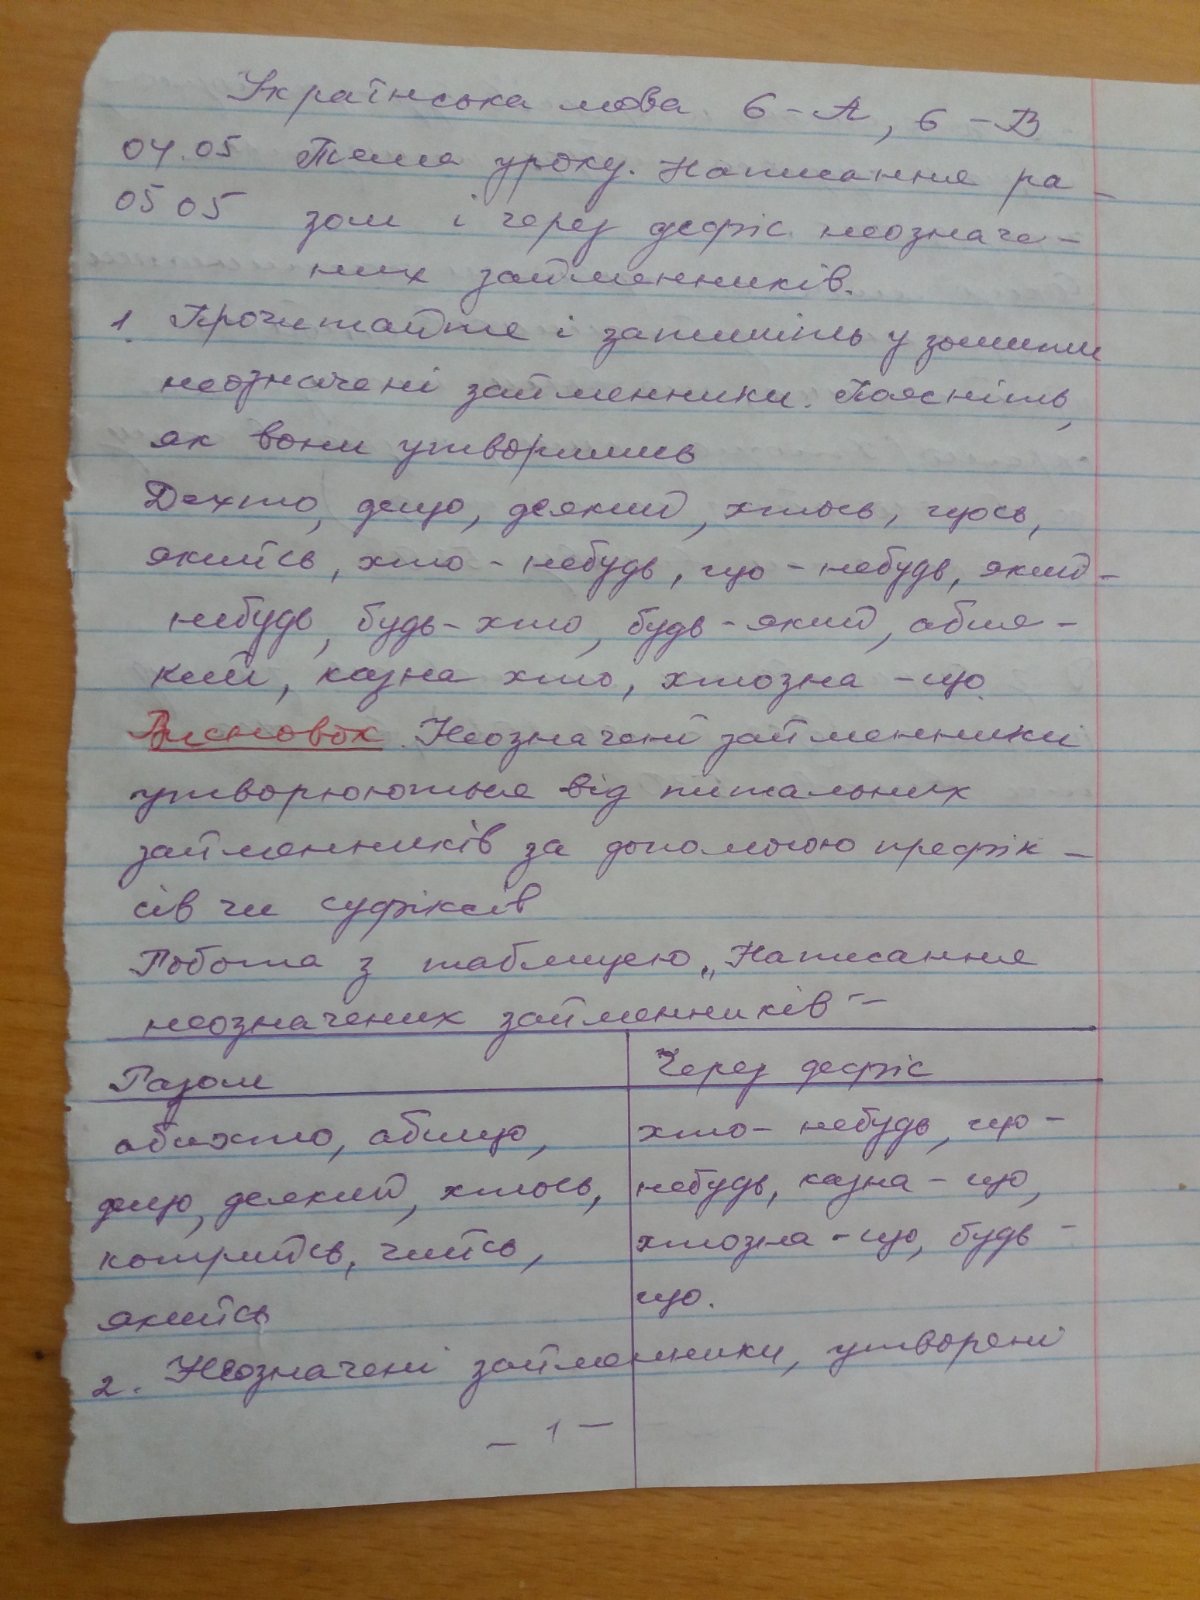 Українська мова 6-А, 6-В
04.05 Тема уроку. Написання ра-
05 05 зом і через дефіс неозначе-
них займенників.
1. Прочитайте і запишіть у зошити
неозначені займенники. Поясніть,
як вони утворились
Дехто, дещо, деякий, хтось, щось,
якийсь, хто-небудь, що-небудь, який-
небудь, будь-хто, будь-який, абия-
кий, казна хто, хтозна-що.
Висновок. Неозначені займенники
утворюються від питальних
займенників за допомогою префік-
сів чи суфіксів
Робота з таблицею „Написання
неозначених займенників"
Разом Через дефіс
абихто, абищо, хто-небудь, що-
дещо, деякий, хтось, небудь, казна-що,
котрийсь, чийсь, хтозна-що, будь-
якийсь що.
2. Неозначені займенники, утворені
- 1 -